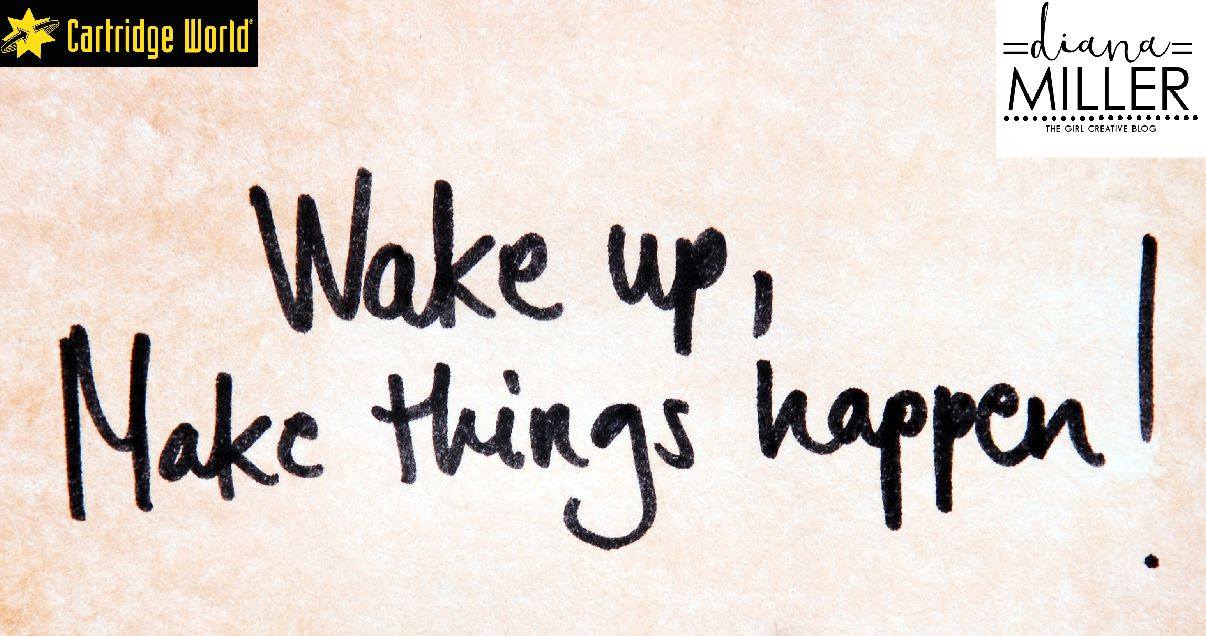 Cartridge World®
diana
MILLER
THE GIRL CREATIVE BLOG
Wake up,
Make things happen!